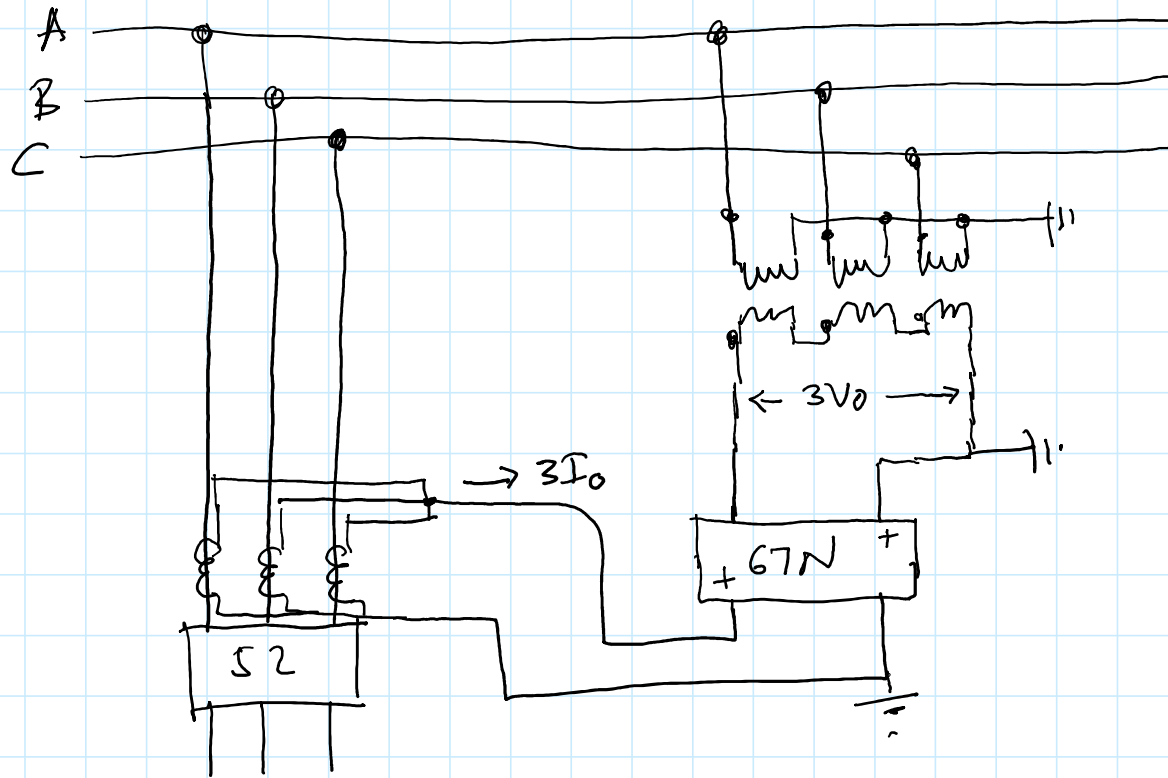 A
B
C
← 3V0 →
→ 3I0
+
67N
+
52